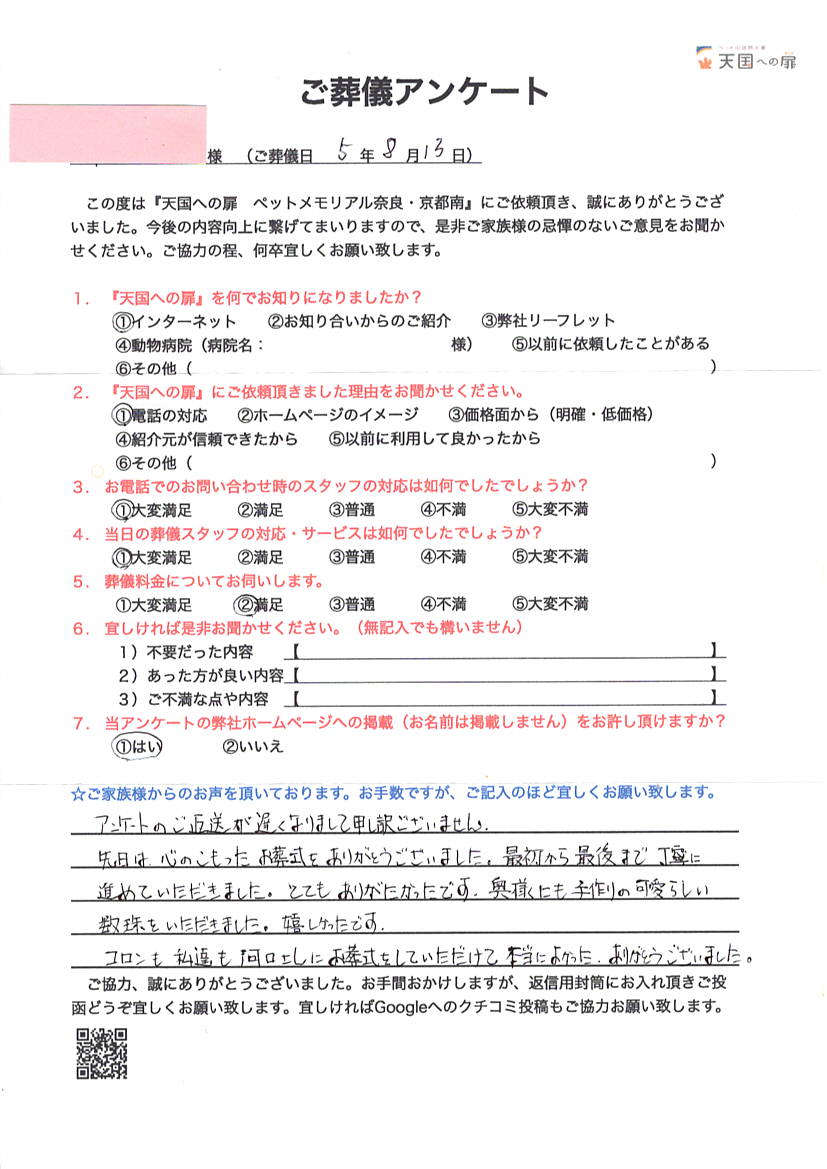 天国への扉
ご葬儀アンケート
様 （ご葬儀日 5 年 8 月 13 日）
この度は『天国への扉 ペットメモリアル奈良・京都南』にご依頼頂き、誠にありがとうござ
いました。今後の内容向上に繋げてまいりますので、是非ご家族様の忌憚のないご意見をお聞か
せください。ご協力の程、何卒宜しくお願い致します。
1． 『天国への扉』を何でお知りになりましたか？
①インターネット ②お知り合いからのご紹介 ③弊社リーフレット
④動物病院（病院名： 様） ⑤以前に依頼したことがある
⑥その他（ ）
2． 『天国への扉』にご依頼頂きました理由をお聞かせください。
①電話の対応 ②ホームページのイメージ ③価格面から（明確・低価格）
④紹介元が信頼できたから ⑤以前に利用して良かったから
⑥その他（ ）
3． お電話でのお問い合わせ時のスタッフの対応は如何でしたでしょうか？
①大変満足 ②満足 ③普通 ④不満 ⑤大変不満
4． 当日の葬儀スタッフの対応・サービスは如何でしたでしょうか？
①大変満足 ②満足 ③普通 ④不満 ⑤大変不満
5． 葬儀料金についてお伺いします。
①大変満足 ②満足 ③普通 ④不満 ⑤大変不満
6． 宜しければ是非お聞かせください。（無記入でも構いません）
1）不要だった内容 【 】
2）あった方が良い内容【 】
3）ご不満な点や内容 【 】
7． 当アンケートの弊社ホームページへの掲載（お名前は掲載しません）をお許し頂けますか？
①はい ②いいえ
☆ご家族様からのお声を頂いております。お手数ですが、ご記入のほど宜しくお願い致します。
アンケートのご返送が遅くなりまして申し訳ございません.
先日は 心のこもった お葬式を ありがとうございました。最初から最後まで 丁寧に
進めていただきました。とても ありがたかったです. 奥様にも手作りの可愛らしい
数珠をいただきました。嬉しかったです.
コロンも 私達も お葬式をしていただけて 本当によかった. ありがとうございました。
ご協力、誠にありがとうございました。お手間おかけしますが、返信用封筒にお入れ頂きご投
函どうぞ宜しくお願い致します。宜しければGoogleへのクチコミ投稿もご協力お願い致します。